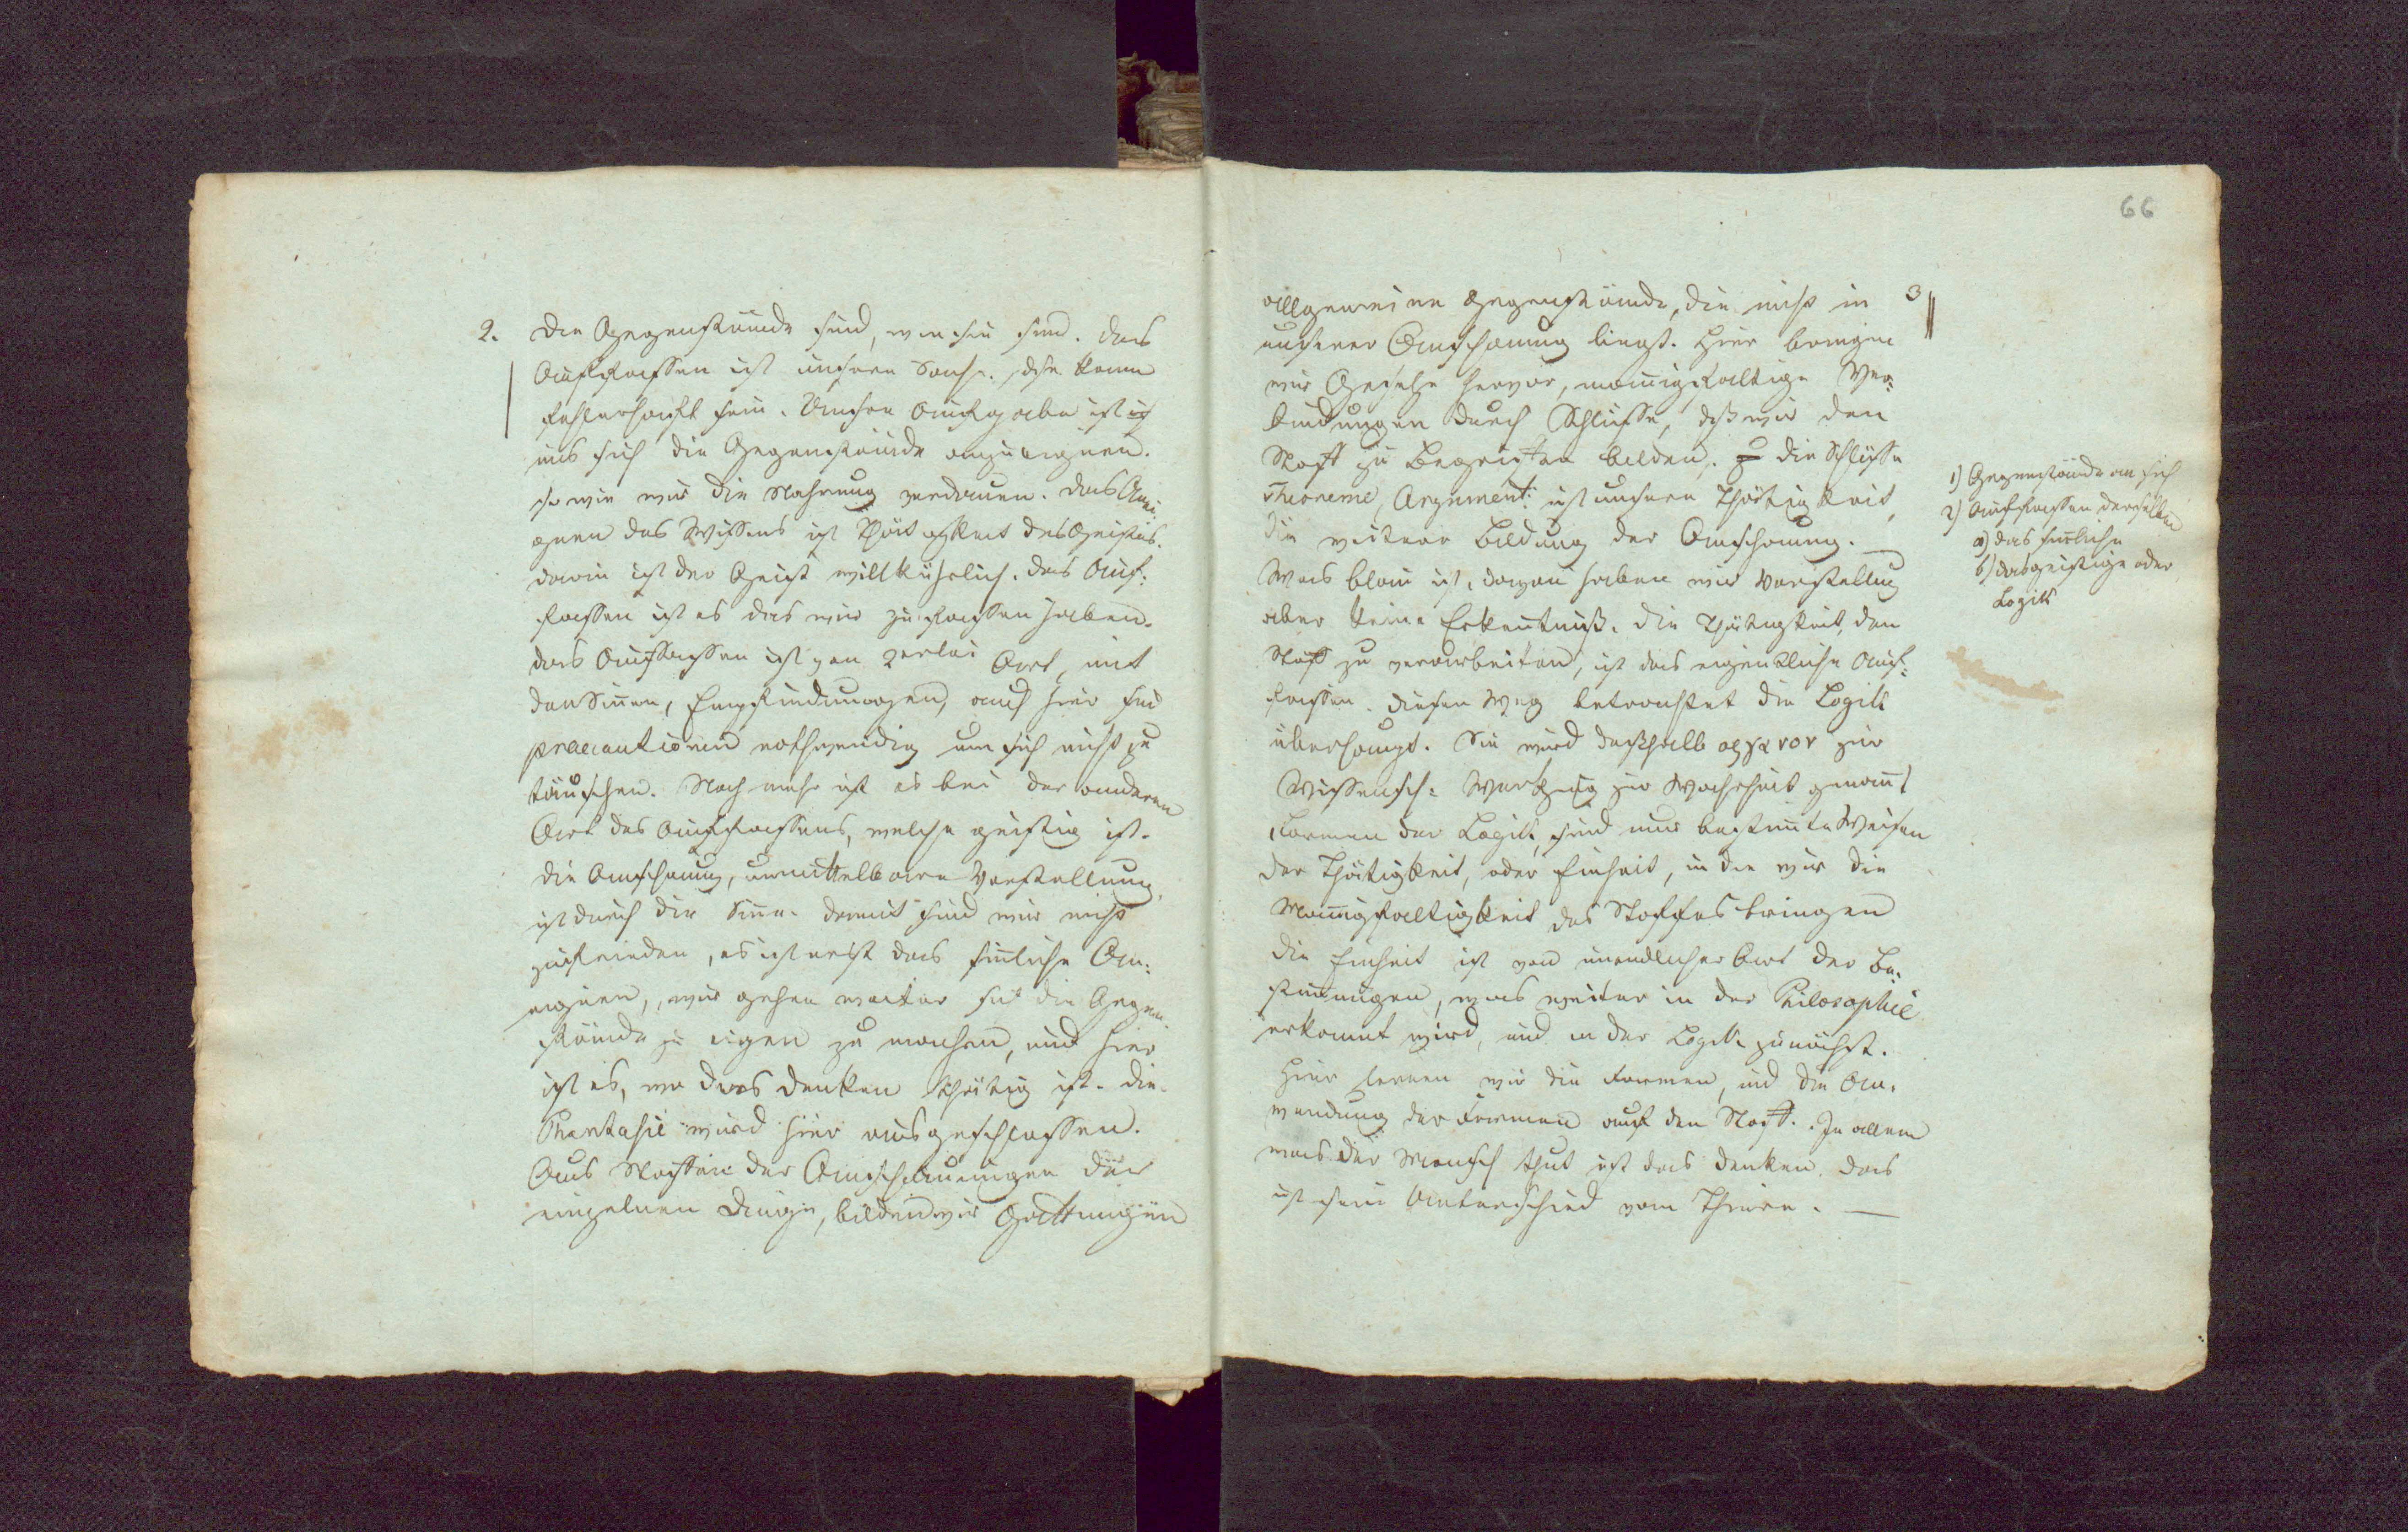 2.
Die Gegenstände sind, wie sie sind. Das
Auffassen ist unsere Sache. Dieß kann
fehlerhaft sein. Unsere Aufgabe ist
uns sich die Gegenstände anzueignen.
so wie wir die Nahrung verdauen. Das Anei-
gnen des Wissens ist Thätigkeit des Geistes.
darin ist der Geist willkührlich. Das Auf-
fassen ist es das wir zu fassen haben.
das Auffassen ist von 2erlei Art, mit
den Sinnen, Empfindungen, auch hier sind
praecautionen nothwendig um sich nicht zu
täuschen. Noch mehr ist es bei der anderen
Art des Auffassens, welche geistig ist.
die Anschauung, unmittelbare Vorstellung
ist durch die Sinne. damit sind wir nicht
zufrieden, es ist erst das sinnliche An-
eignen, wir gehen weiter die Gegen-
stände zu eigen zu machen, und hier
ist es, wo das Denken thätig ist. Die
Phantasie wird hier ausgeschlossen.
Aus Stoffen der Anschauungen der
einzelnen Dinge, bilden wir Gattungen
66
3
allgemeine Gegenstände, die nicht in
unserer Anschauung liegt. Hier bringen
wir Gesetze hervor, mannigfaltige Ver-
bindungen durch Schlüsse, daß wir den
Stoff zu Begriffen bilden. Die Schlüsse
Theoreme, Argument: ist unsere Thätigkeit,
die weitere Bildung der Anschauung. —
Was blau ist, davon haben wir Vorstellung
aber keine Erkentniß. Die Thätigkeit, den
Stoff zu verarbeiten, ist das eigentliche Auf-
fassen. Diesen Weg betrachtet die Logik
überhaupt. Sie wird deßhalb οργανον zur
Wissensch: Werkzeug zur Wahrheit genannt
Formen der Logik, sind nur bestimte Weisen
der Thätigkeit, oder Einheit, in die wir die
Mannigfaltigkeit des Stoffes bringen
die Einheit ist von unendlicher Art der Be-
stimungen, was weiter in der Philosophie
erkannt wird, und in der Logik zunächst.
Hier lernen wir die Formen, und die An-
wendung der Formen auf den Stoff. In allem
was der Mensch thut ist das Denken. das
ist sein Unterschied vom Thiere. —
1) Gegenstände an sich
2) Auffassen derselben
a) das sinnliche
b) das geistige oder
Logik